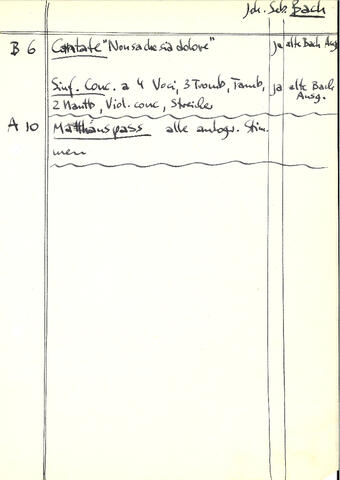 Joh. Seb. Bach
B 6 Cantate "Non sa che sia dolore" ja alte Bach Ausg
Sinf. Conc. a 4 Voci, 3 Tromb, Tamb, ja alte Bach
2 Hautb, Viol. conc, Streicher Ausg.
A 10 Matthäuspass alle autogr. Stim
men